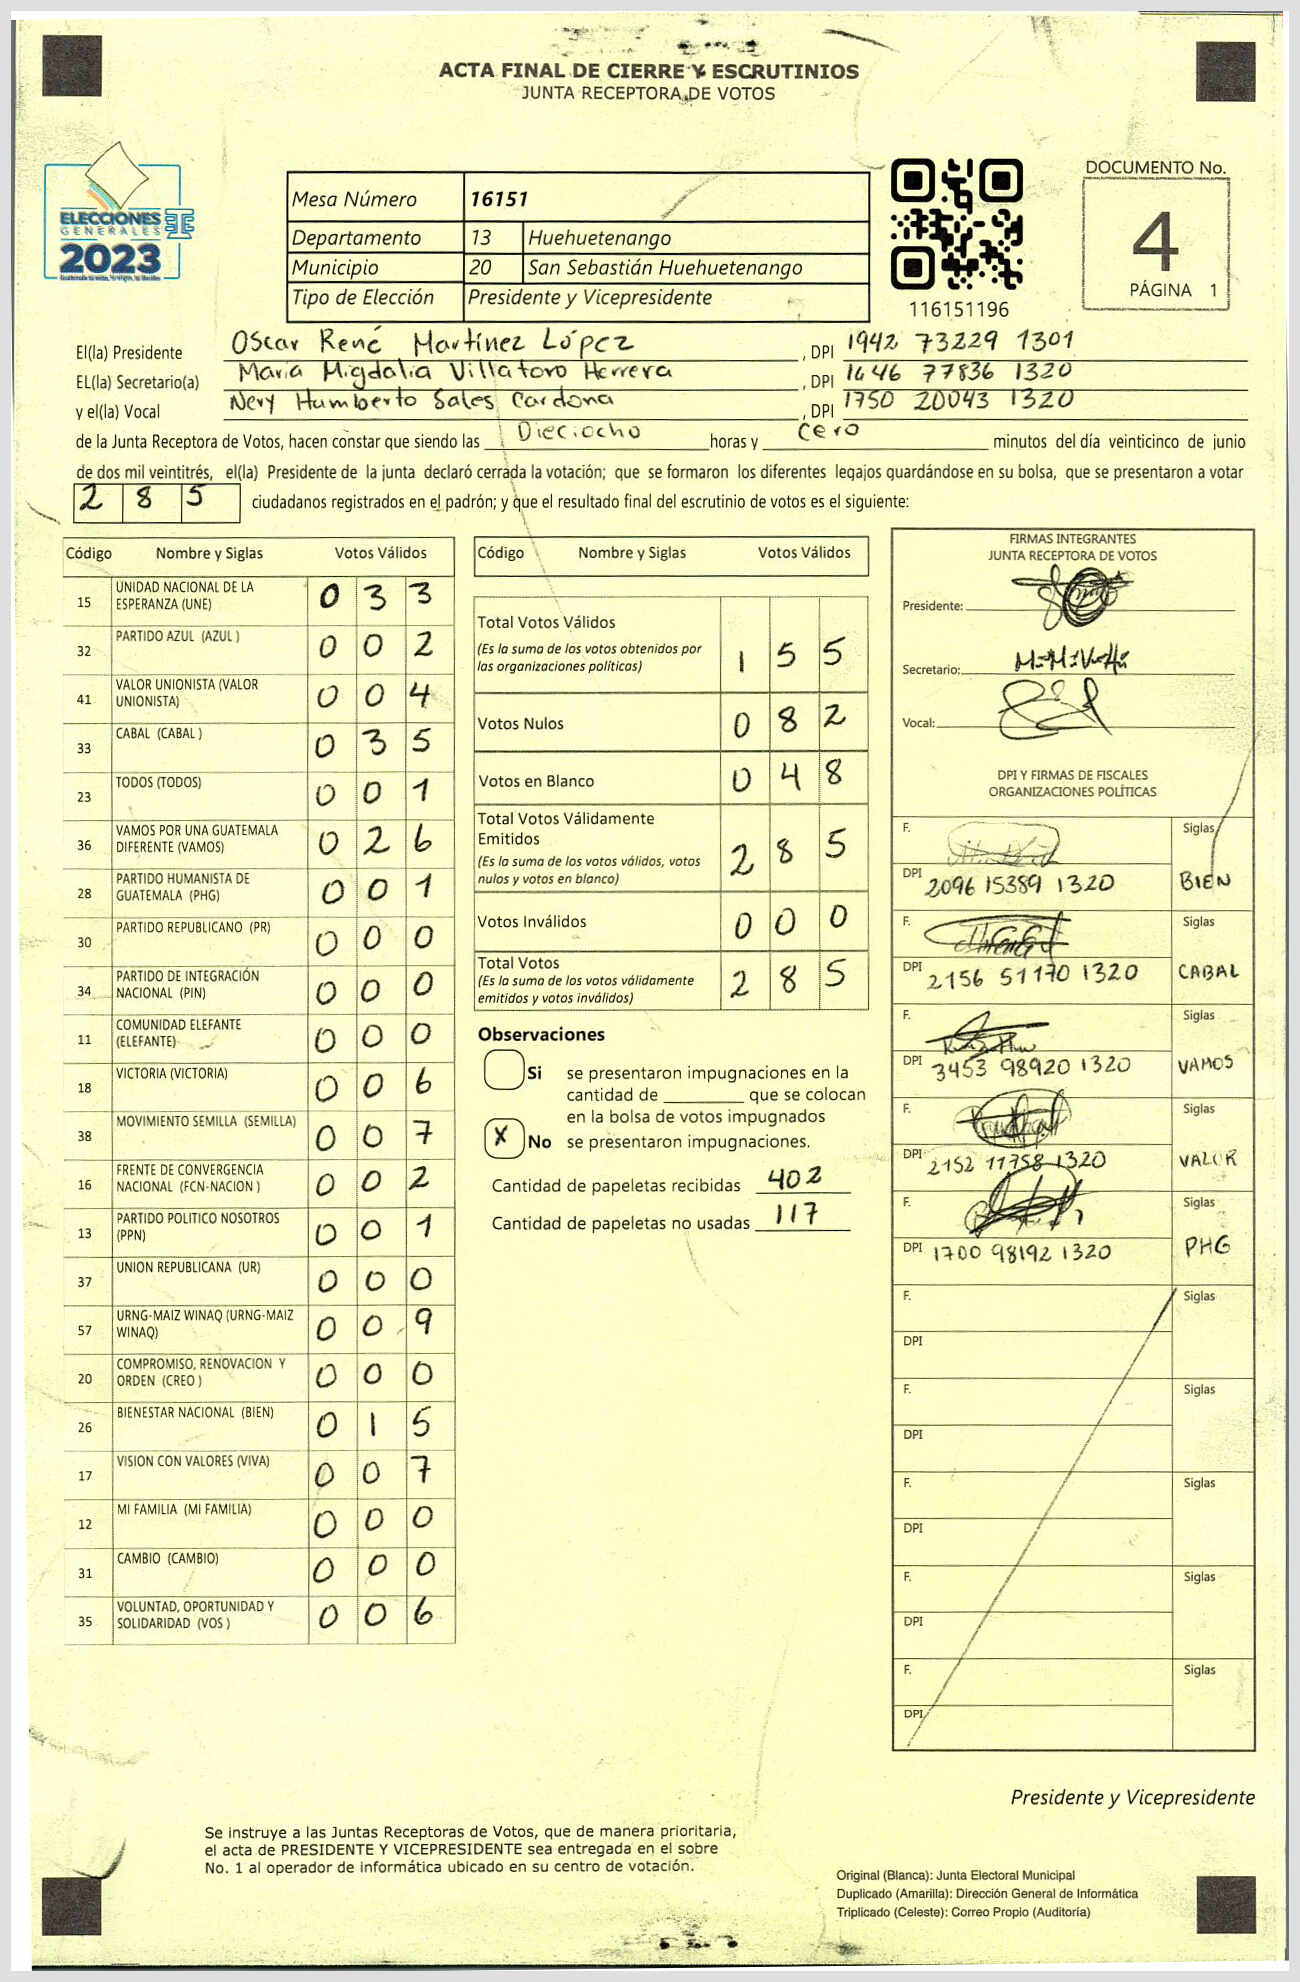 ACTA FINAL DE CIERRE Y ESCRUTINIOS
JUNTA RECEPTORA DE VOTOS
ELECCIONES
GENERALES
2023
Mesa Número 16151
Departamento 13 Huehuetenango
Municipio 20 San Sebastián Huehuetenango
Tipo de Elección Presidente y Vicepresidente
116151196
DOCUMENTO No.
4
PÁGINA 1
El(la) Presidente Oscar René Martínez López , DPI 1942 73229 1301
EL(la) Secretario(a) María Migdalia Villatoro Herrera , DPI 1646 77836 1320
y el(la) Vocal Nery Humberto Sales Cardona , DPI 1750 20043 1320
de la Junta Receptora de Votos, hacen constar que siendo las Dieciocho horas y Cero minutos del día veinticinco de junio
de dos mil veintitrés, el(la) Presidente de la junta declaró cerrada la votación; que se formaron los diferentes legajos guardándose en su bolsa, que se presentaron a votar
2 8 5 ciudadanos registrados en el padrón; y que el resultado final del escrutinio de votos es el siguiente:
Código Nombre y Siglas Votos Válidos
15 UNIDAD NACIONAL DE LA
ESPERANZA (UNE) 0 3 3
32 PARTIDO AZUL (AZUL ) 0 0 2
41 VALOR UNIONISTA (VALOR
UNIONISTA) 0 0 4
33 CABAL (CABAL ) 0 3 5
23 TODOS (TODOS) 0 0 1
36 VAMOS POR UNA GUATEMALA
DIFERENTE (VAMOS) 0 2 6
28 PARTIDO HUMANISTA DE
GUATEMALA (PHG) 0 0 1
30 PARTIDO REPUBLICANO (PR) 0 0 0
34 PARTIDO DE INTEGRACIÓN
NACIONAL (PIN) 0 0 0
11 COMUNIDAD ELEFANTE
(ELEFANTE) 0 0 0
18 VICTORIA (VICTORIA) 0 0 6
38 MOVIMIENTO SEMILLA (SEMILLA) 0 0 7
16 FRENTE DE CONVERGENCIA
NACIONAL (FCN-NACION ) 0 0 2
13 PARTIDO POLITICO NOSOTROS
(PPN) 0 0 1
37 UNION REPUBLICANA (UR) 0 0 0
57 URNG-MAIZ WINAQ (URNG-MAIZ
WINAQ) 0 0 9
20 COMPROMISO, RENOVACION Y
ORDEN (CREO ) 0 0 0
26 BIENESTAR NACIONAL (BIEN) 0 1 5
17 VISION CON VALORES (VIVA) 0 0 7
12 MI FAMILIA (MI FAMILIA) 0 0 0
31 CAMBIO (CAMBIO) 0 0 0
35 VOLUNTAD, OPORTUNIDAD Y
SOLIDARIDAD (VOS ) 0 0 6
Código Nombre y Siglas Votos Válidos
Total Votos Válidos
(Es la suma de los votos obtenidos por
las organizaciones políticas) 1 5 5
Votos Nulos 0 8 2
Votos en Blanco 0 4 8
Total Votos Válidamente
Emitidos
(Es la suma de los votos válidos, votos
nulos y votos en blanco) 2 8 5
Votos Inválidos 0 0 0
Total Votos
(Es la suma de los votos válidamente
emitidos y votos inválidos) 2 8 5
Observaciones
Si se presentaron impugnaciones en la
cantidad de ________ que se colocan
en la bolsa de votos impugnados
X No se presentaron impugnaciones.
Cantidad de papeletas recibidas 402
Cantidad de papeletas no usadas 117
FIRMAS INTEGRANTES
JUNTA RECEPTORA DE VOTOS
Presidente:
Secretario:
Vocal:
DPI Y FIRMAS DE FISCALES
ORGANIZACIONES POLÍTICAS
F. Siglas
DPI 2096 15389 1320 BIEN
F. Siglas
DPI 2156 51170 1320 CABAL
F. Siglas
DPI 3453 98920 1320 VAMOS
F. Siglas
DPI 2152 11758 1320 VALOR
F. Siglas
DPI 1700 98192 1320 PHG
F. Siglas
DPI
F. Siglas
DPI
F. Siglas
DPI
F. Siglas
DPI
F. Siglas
DPI
Presidente y Vicepresidente
Se instruye a las Juntas Receptoras de Votos, que de manera prioritaria,
el acta de PRESIDENTE Y VICEPRESIDENTE sea entregada en el sobre
No. 1 al operador de informática ubicado en su centro de votación.
Original (Blanca): Junta Electoral Municipal
Duplicado (Amarilla): Dirección General de Informática
Triplicado (Celeste): Correo Propio (Auditoría)